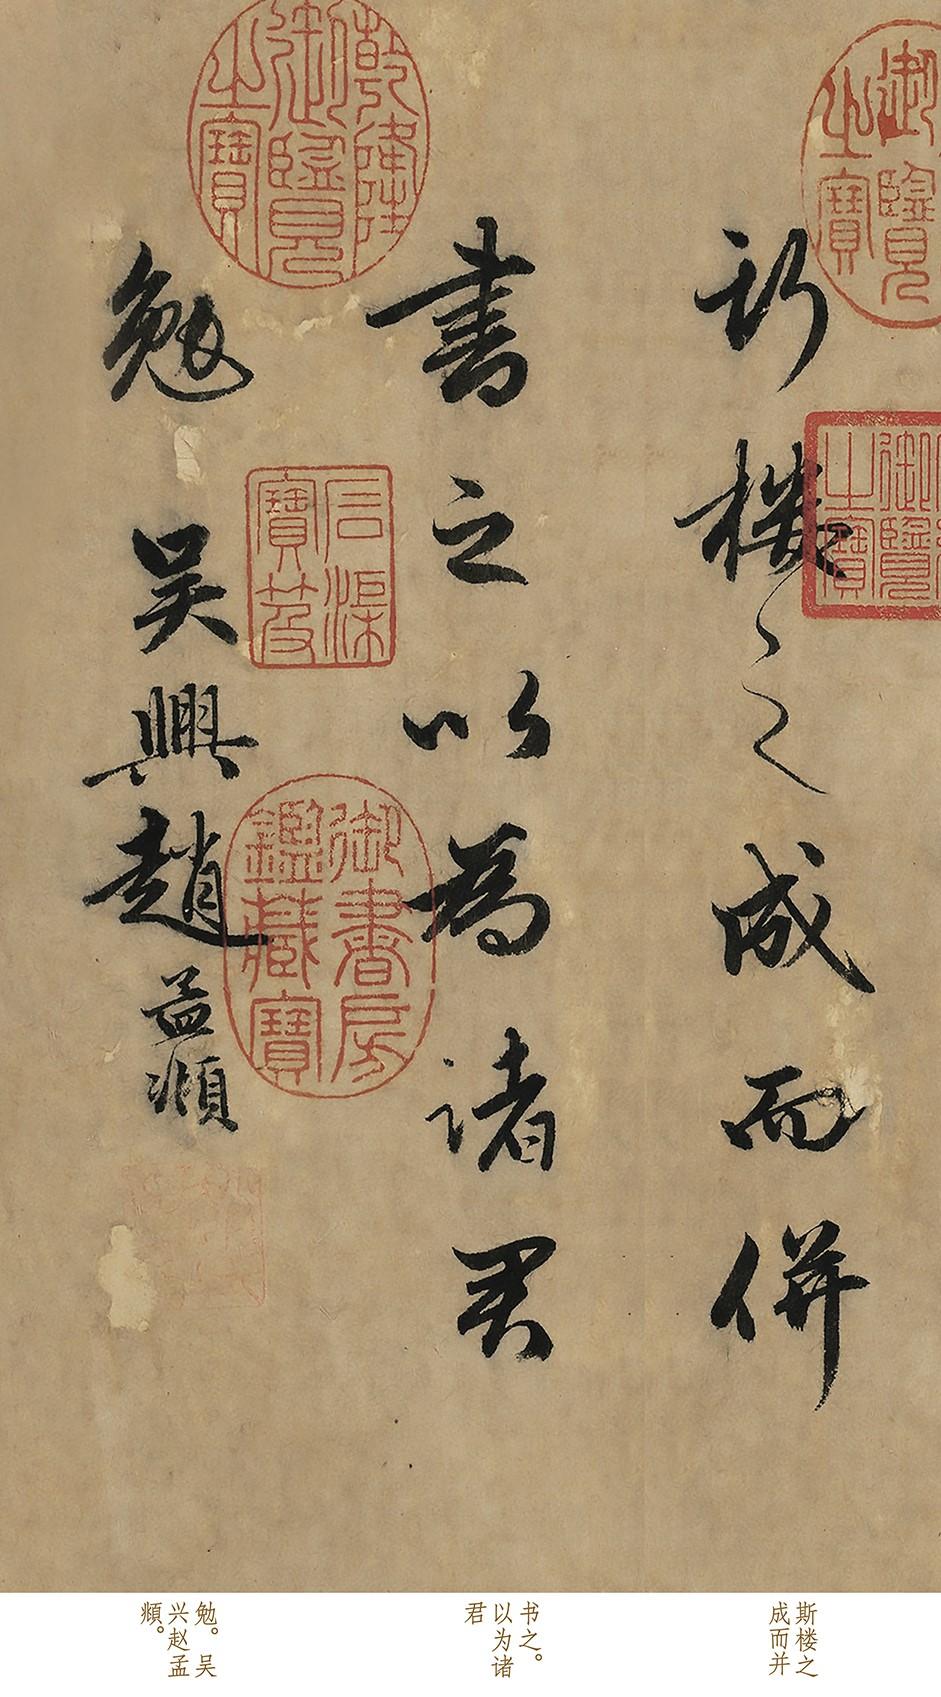 斯樓之成而併
書之以為諸君
勉吳興趙孟頫
御覽之寶
御覽之寶
乾隆御覽之寶
石渠寶笈
御書房鑑藏寶
斯楼之
成而并
书之。
以为诸
君
勉。吴
兴赵孟
頫。